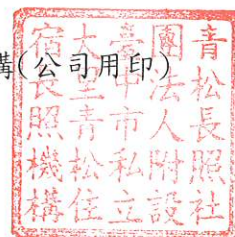 構(公司用印)
青松長照社
團法人附設
臺中市私立
大里青松住
宿長照機構